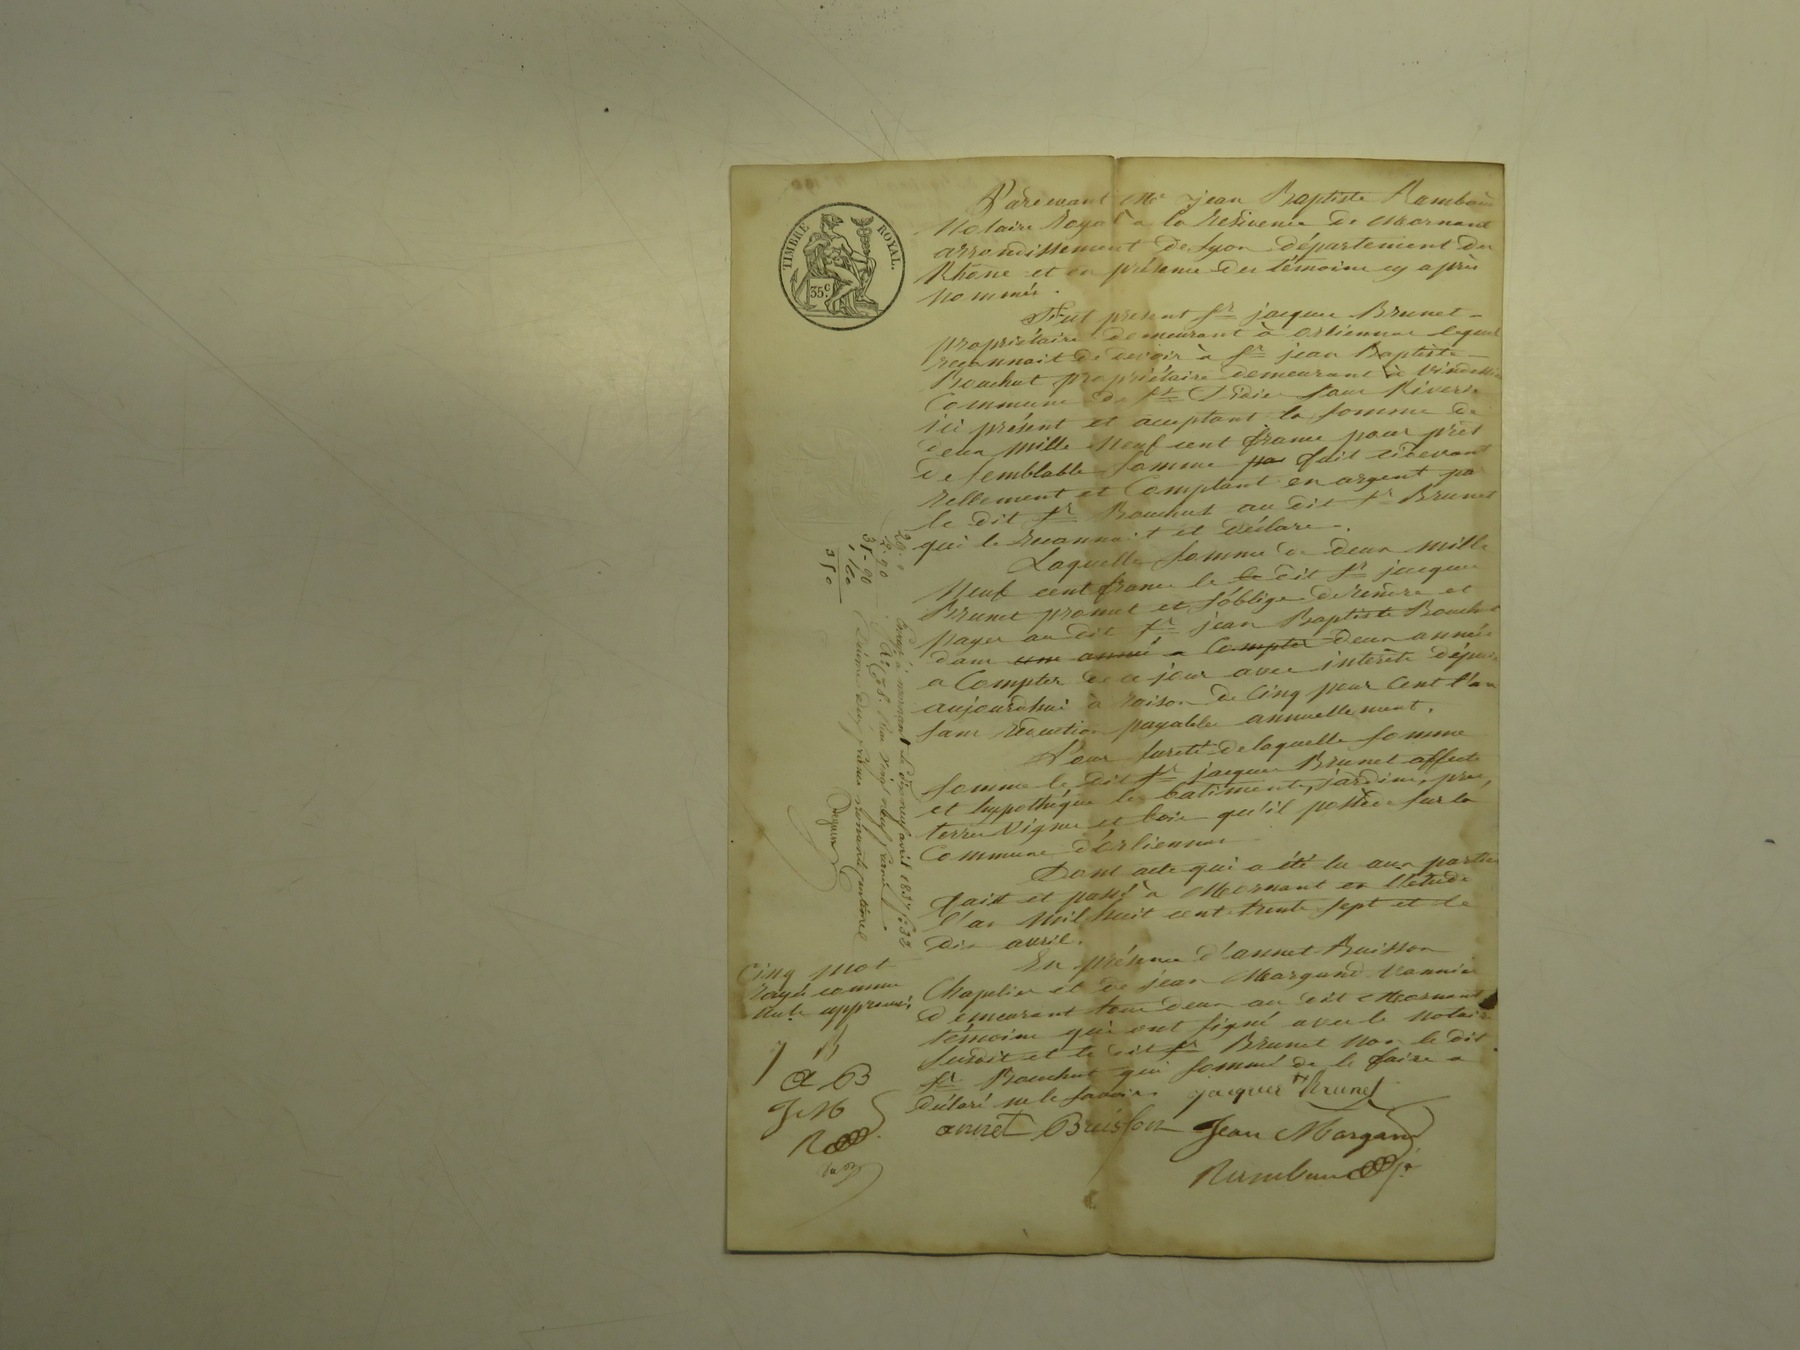 TIMBRE ROYAL.
35c.
Pardevant Me jean Baptiste Rambaud
Notaire Royal à la Residence de Mornant
arrondissement de Lyon département du
Rhône et en présence des témoins cy après
nommés.
Fut present sr jacques Brunet
propriétaire demeurant à orliennas lequel
reconnait devoir à sr jean Baptiste
Bouchut propriétaire demeurant à
Commune de st Didier sous Riverie
ici présent et acceptant la somme de
deux mille neuf cent francs pour prêt
de semblable somme pa fait
rellement et Comptant en argent pa
le dit sr Bouchut au dit sr Brunet
qui le reconnait et déclare.
Laquelle somme de deux mille
neuf cent francs le le dit sr jacques
Brunet promet et s'oblige de rendre et
payer au dit sr jean Baptiste Bouchut
dans une année a Compter deux années
a Compter de ce jour avec intérêts depuis
aujourdhui à raison de Cinq pour Cent l'an
sans retention payables annuellement.
Pour sureté de laquelle somme
somme le dit sr jacques Brunet affecte
et hypothéque les batiments, jardins, prés,
terres Vignes et bois qu'il possède sur la
Commune d'orliennas
Dont acte qui a été lu aux parties
fait et passé à Mornant en l'étude
l'an mil huit cent trente sept et le
dix avril.
En présence d'annet Buisson
Chapelier et de jean Margand Vannier
demeurant tous deux au dit Mornant
témoins qui ont signé avec le notaire
susdit et le dit sr Brunet non le dit
sr Bouchut qui sommé de le faire a
déclaré ne le savoir. jacques Brunet
annet Buisson Jean Margand
Rambaud
29.
2.90
31-90
1 60
le dix neuf avril 1837 f. 32
Cinq mot
rayés comme
nuls approuvés
a B
J M
R